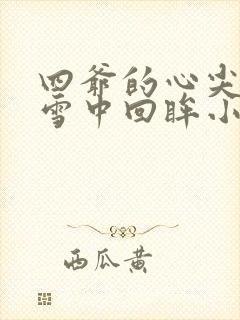 四爷的心尖
雪中回眸小
西瓜黄